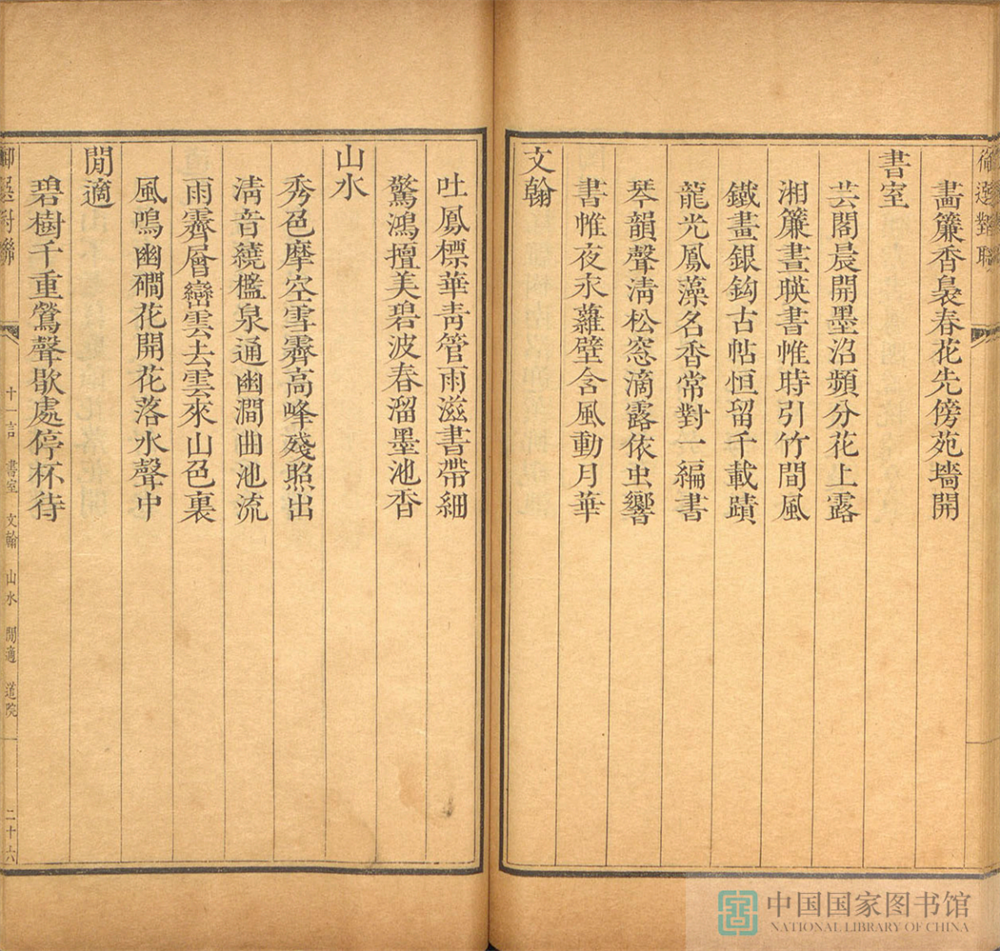 御選對聯
畵簾香裊春花先傍苑墻開
書室
芸閣晨開墨沼頻分花上露
湘簾晝暎書帷時引竹間風
鐵畫銀鈎古帖恒留千載蹟
龍光鳳藻名香常對一編書
琴韻聲淸松窓滴露依虫響
書帷夜永蘿壁含風動月華
文翰
吐鳳標華靑管雨滋書帶細
驚鴻擅美碧波春溜墨池香
山水
秀色摩空雪霽高峰殘照出
淸音繞檻泉通幽澗曲池流
雨霽層巒雲去雲來山色裏
風鳴幽磵花開花落水聲中
閒適
碧樹千重鶯聲歇處停杯待
十一言 書室 文翰 山水 閒適 道院
二十六
中国国家图书馆
NATIONAL LIBRARY OF CHINA